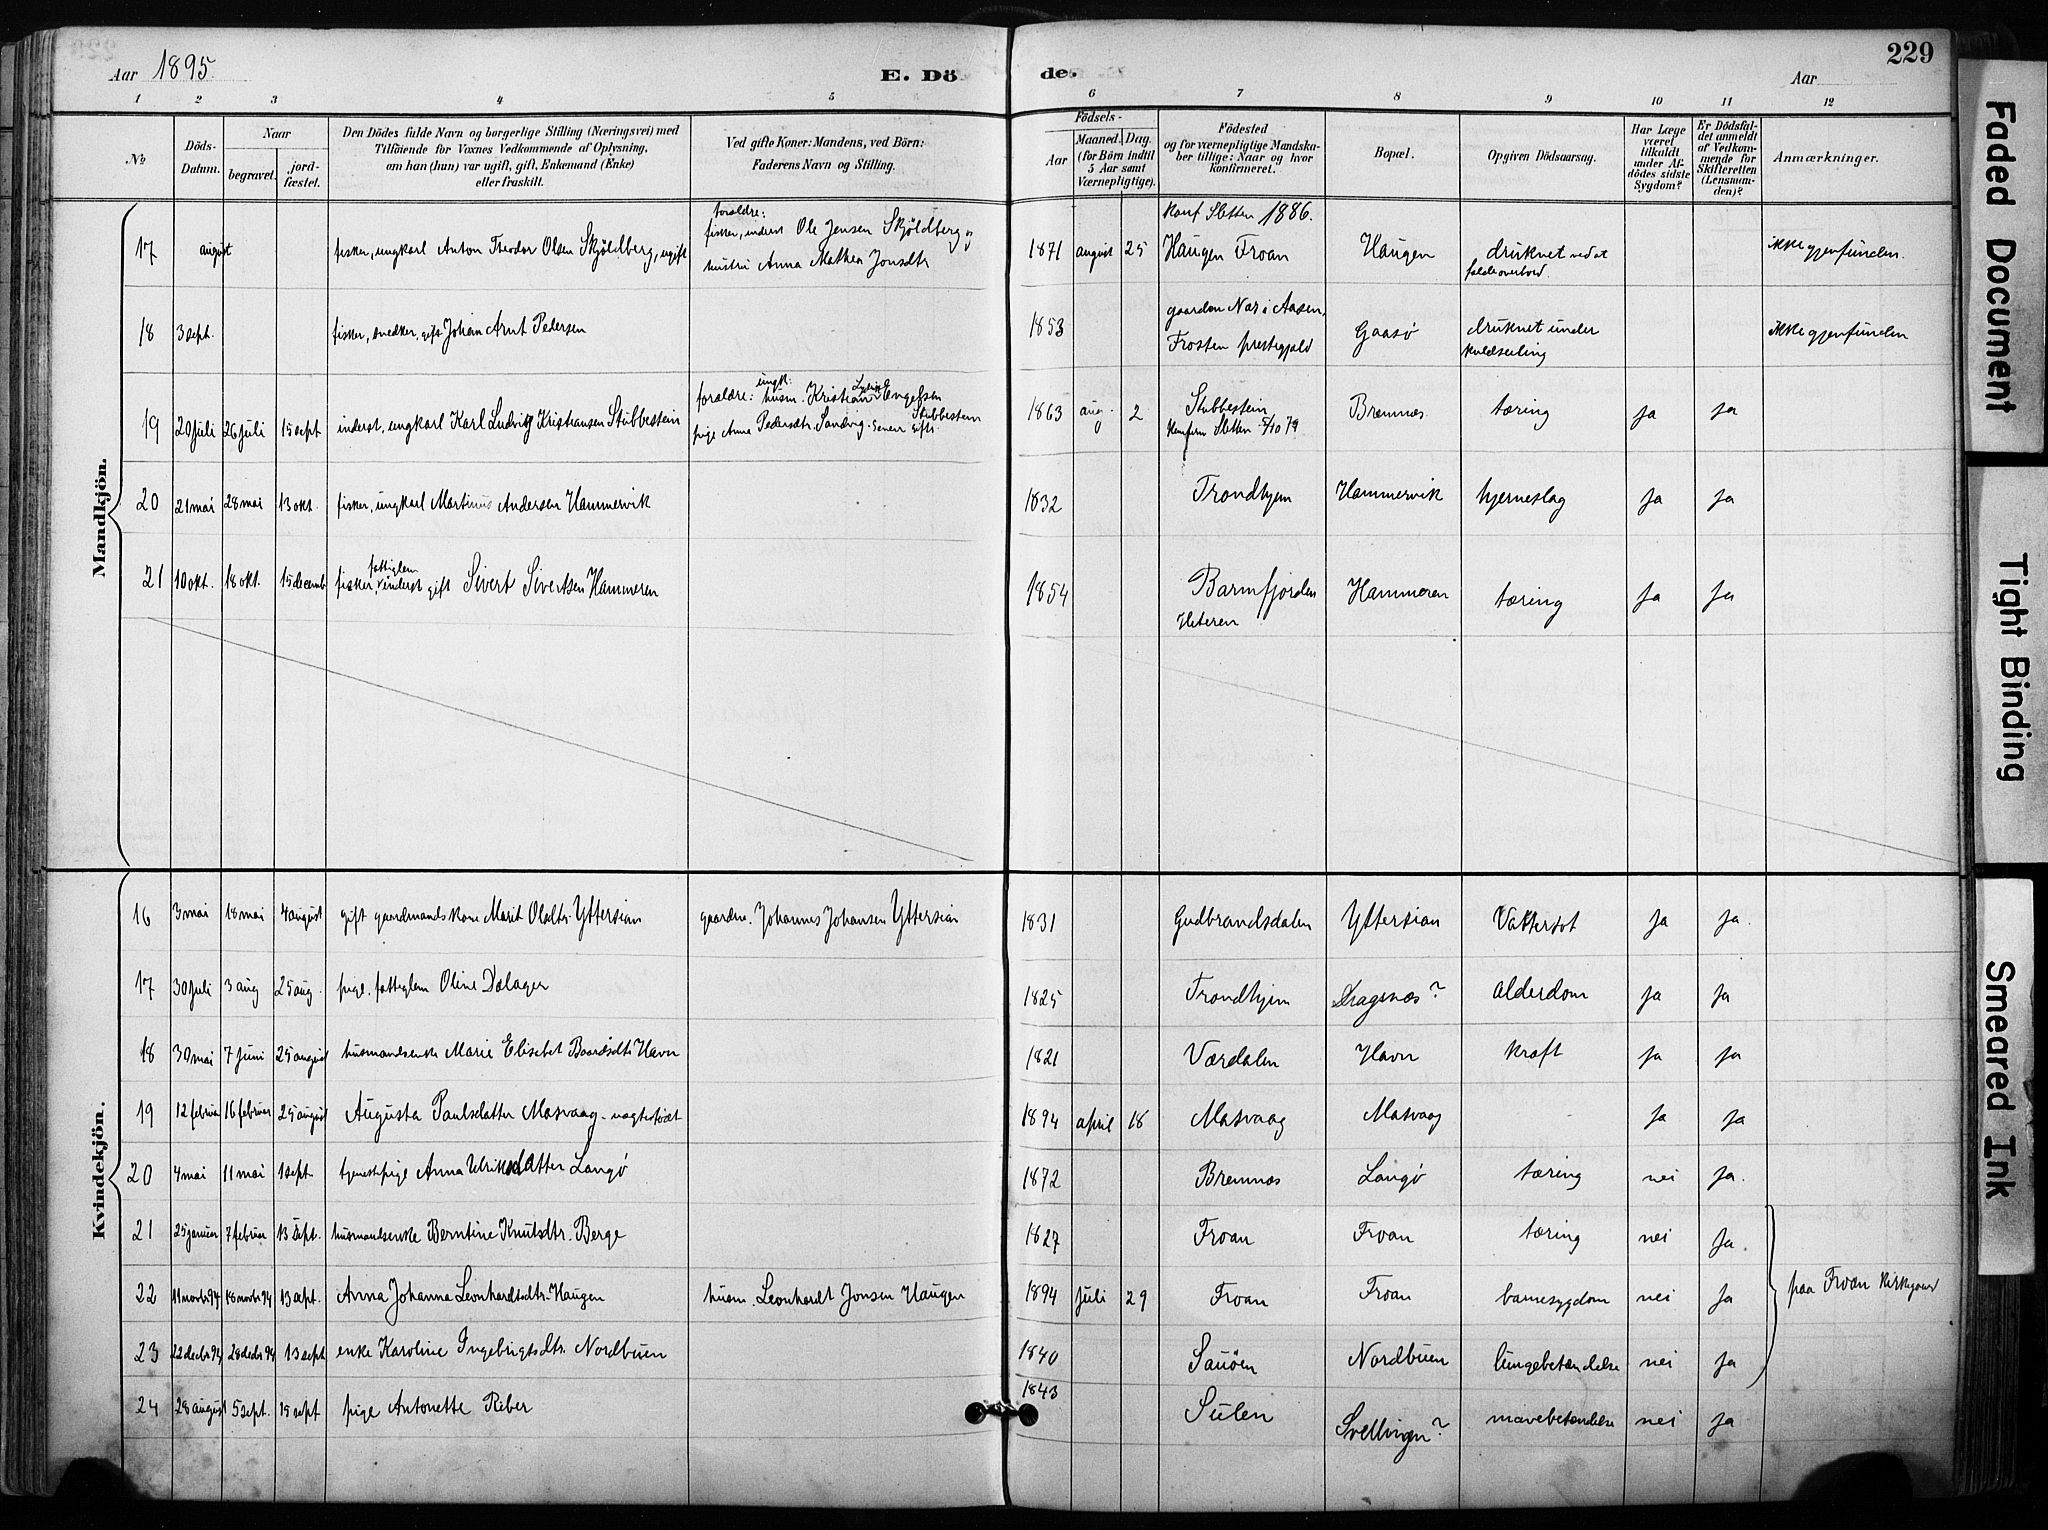 Aar 1895. E. Dö de. Aar 229
1 2 3 4 5 6 7 8 9 10 11 12
No Döds-Datum. Naar begravet. jord-fæstet. Den Dödes fulde Navn og borgerlige Stilling (Næringsvei) med Tilföiende for Voxnes Vedkommende af Oplysning, om han (hun) var ugift, gift, Enkemand (Enke) eller fraskilt. Ved gifte Koner: Mandens, ved Börn: Faderens Navn og Stilling. Födsels- Aar Maaned. Dag. (for Börn indtil 5 Aar samt Værnepligtige). Födested og for værnepligtige Mandskaber tillige: Naar og hvor konfirmeret. Bopæl. Opgiven Dödsaarsag. Har Læge været tilkaldt under Afdödes sidste Sygdom? Er Dödsfaldet anmeldt af Vedkommende for Skifteretten (Lensmanden)? Anmærkninger.
Mandkjön.
forældre: konf Sletten 1886.
17 august fisker, ungkarl Anton Theodor Olsen Skjöldberg, ugift fisker, inderst Ole Jensen Skjöldberg og hustru Anna Mathea Jonsdtr 1871 august 25 Haugen Froan Haugen druknet ved at falde overbord ikke gjenfunden.
18 3 sept. fisker, snedker, gift Johan Arnt Pedersen 1853 gaarden Nær i Aasen, Frosten prestegjæld Gaasø druknet under kuldseiling ikke gjenfunden
19 20 juli 26 juli 15 sept inderst, ungkarl Karl Ludvig Kristiansen Stubbestein forældre: ungk. husm. Kristian Engelsen Stubbestein pige Anna Pedersdtr. Sandvig. senere gifte 1863 aug. 2 Stubbestein Konfirm Sletten 5/10 79 Bremnes tæring ja ja
20 21 mai 28 mai 13 okt. fisker, ungkarl Martinus Andersen Hammervik 1832 Trondhjem Hammervik hjerneslag ja ja
21 10 okt. 18 okt. 15 decemb fisker, fattiglem inderst gift Sivert Sivertsen Hammeren 1854 Barmfjorden Hiteren Hammeren tæring ja ja
Kvindekjön.
16 3 mai 18 mai 4 august gift gaardmandskone Marit Olsdtr. Yttersian gaardm. Johannes Johansen Yttersian 1831 Gudbrandsdalen Yttersian Vattersot ja ja.
17 30 juli 3 aug 25 aug. pige. fattiglem Oline Dalager 1825 Trondhjem Dragsnæs? alderdom ja ja
18 30 mai 7 juni 25 august husmandsenke Marie Elisabet Baardsdtr Havn 1821 Værdalen Havn kræft ja ja
19 12 februar 16 februar 25 august Augusta Paulsdatter Masvaag - uægtefödt 1894 april 18 Masvaag Masvaag ja ja
20 4 mai 11 mai 1 sept. tjenestepige Anna Ulriksdatter Langø 1872 Bremnes Langø tæring nei ja.
21 25 januar 7 februar 13 sept. husmandsenke Berntine Knutsdtr. Berge 1827 Froan Froan tæring nei ja.
22 11 novbr 94 18 novbr 94 13 sept. Anna Johanna Leonhardtsdtr. Haugen husm. Leonhardt Jonsen Haugen 1894 juli 29 Froan Froan barnesygdom nei ja paa Froan kirkegaard
23 22 decbr 94 28 decbr 94 13 sept enke Karoline Ingebrigtsdtr. Nordbuen 1840 Sauøen Nordbuen lungebetændelse nei ja
24 28 august 5 sept. 15 sept pige Antonette Riber 1843 Sulen Svellingen? mavebetændelse nei ja
Faded Document
Tight Binding
Smeared Ink